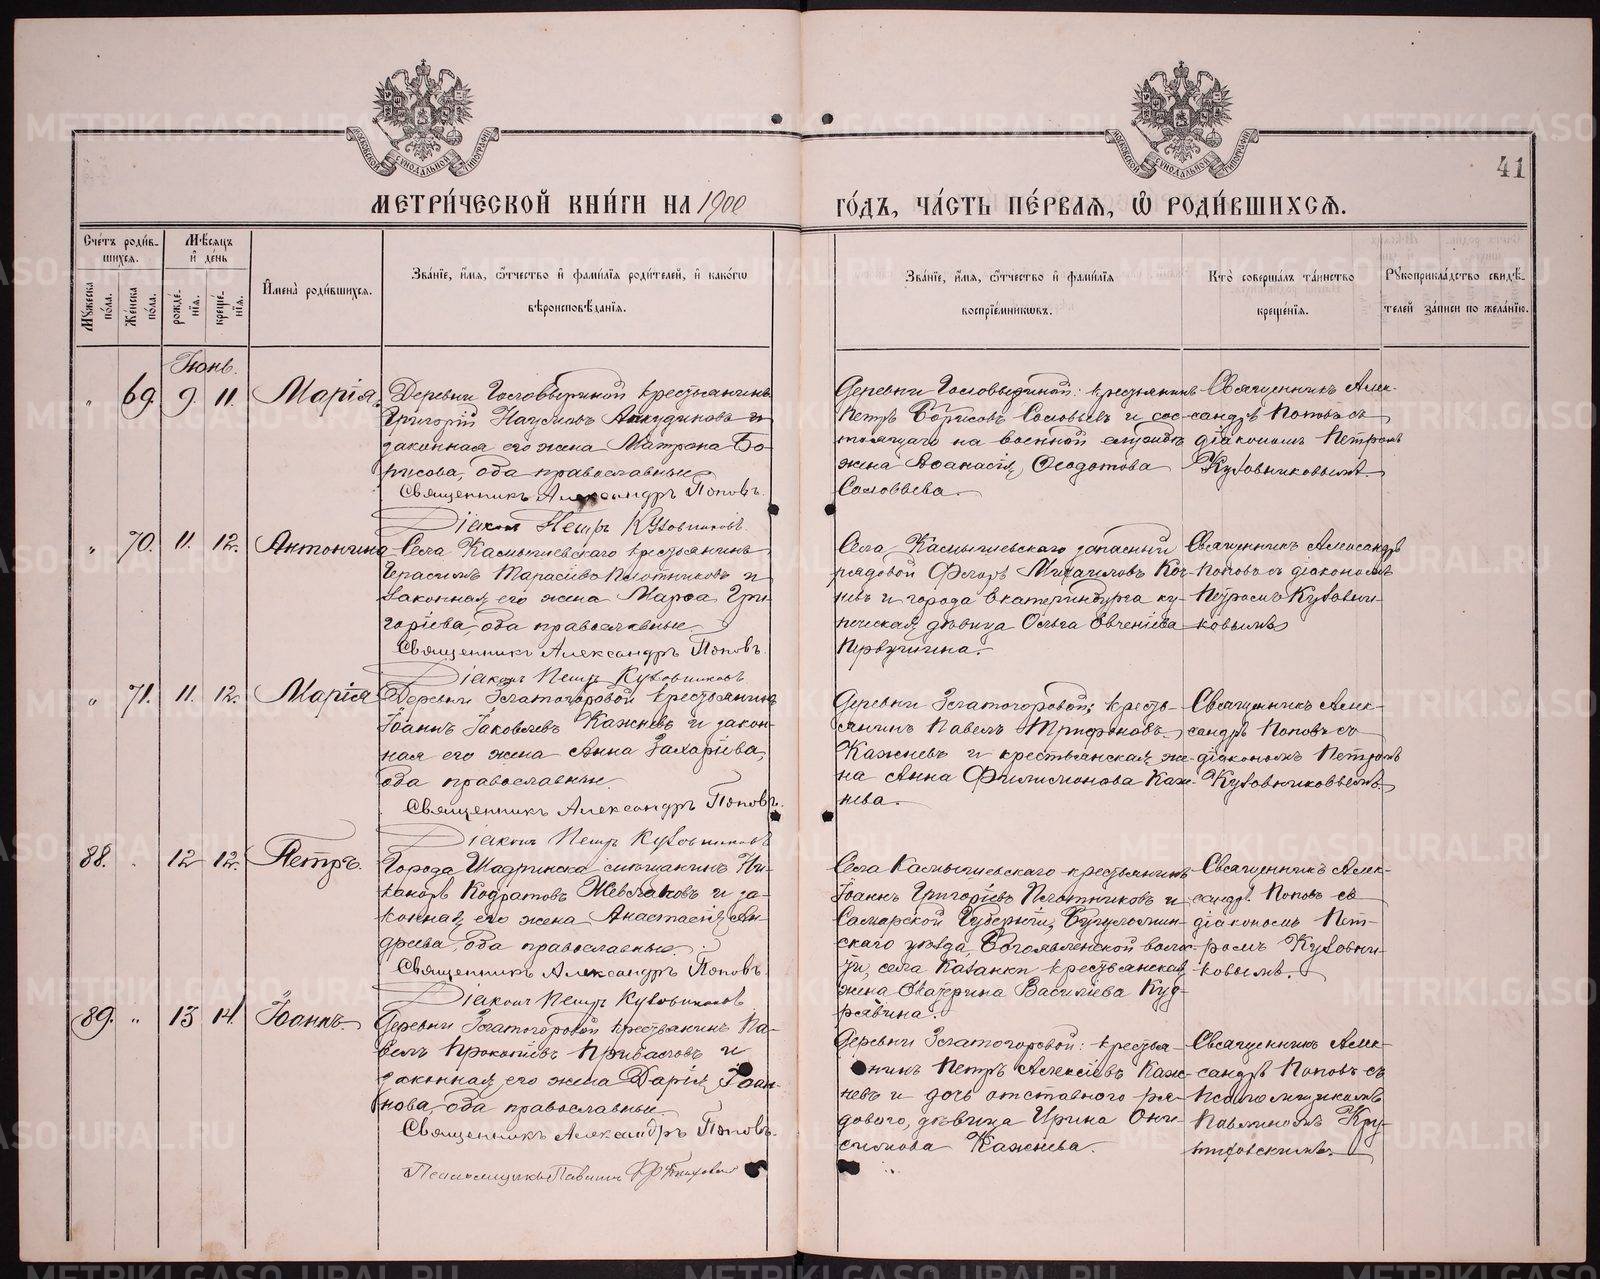 МОСКОВСКОЙ СУНОДАЛЬНОЙ ТИПОГРАФІИ
МОСКОВСКОЙ СУНОДАЛЬНОЙ ТИПОГРАФІИ
41
МЕТРИ́ЧЕСКОЙ КНИ́ГИ НА 1900 ГО́ДЪ, ЧА́СТЬ ПЕ́РВАЯ, Ѡ РОДИ́ВШИХСЯ.
Счетъ родившихся.
Мужеска пола.
Женска пола.
Мѣсяцъ и день
рожденія.
крещенія.
Имена родившихся.
Званіе, имя, отчество и фамилія родителей, и какого
вѣроисповѣданія.
Званіе, имя, отчество и фамилія
воспріемниковъ.
Кто совершалъ таинство
крещенія.
Рукоприкладство свидѣ-
телей записи по желанію.
Іюнь.
" 69. 9. 11. Марія.
Деревни Гословыриной крестьянинъ
Григорій Наумовъ Анкудиновъ и
законная его жена Матрона Бо-
рисова, оба православные
Священникъ Александръ Поповъ.
Діаконъ Петръ Кузовниковъ.
Деревни Гословыриной: крестьянинъ
Петръ Борисовъ Соловьевъ и сос-
тоящаго на военной службѣ
жена Аѳанасія Ѳеодотова
Соловьева.
Священникъ Алек-
сандръ Поповъ съ
діакономъ Петромъ
Кузовниковымъ
" 70. 11. 12. Антонина
Села Камышевскаго крестьянинъ
Герасимъ Тарасіевъ Плотниковъ и
законная его жена Марѳа Гри-
горіева, оба православные.
Священникъ Александръ Поповъ.
Діаконъ Петръ Кузовниковъ
Села Камышевскаго запасный
рядовой Флоръ Михаиловъ Кож-
невъ и города Екатеринбурга ку-
печеская дѣвица Ольга Евгеніева
Первушина.
Священникъ Александръ
Поповъ съ діакономъ
Петромъ Кузовни-
ковымъ
" 71. 11. 12. Марія
Деревни Златогоровой крестьянинъ
Іоаннъ Іаковлевъ Кажневъ и закон-
ная его жена Анна Захаріева,
оба православные.
Священникъ Александръ Поповъ.
Діаконъ Петръ Кузовниковъ
Деревни Златогоровой: кресть-
янинъ Павелъ Трифоновъ
Кажневъ и крестьянская же-
на Анна Филимонова Каж-
нева.
Священникъ Алек-
сандръ Поповъ съ
діакономъ Петромъ
Кузовниковымъ.
88. " 12 12. Петръ.
Города Шадринска мѣщанинъ Ни-
каноръ Кодратовъ Жевлаковъ и за-
конная его жена Анастасія Ан-
дреева, оба православные.
Священникъ Александръ Поповъ.
Діаконъ Петръ Кузовниковъ
Села Камышевскаго крестьянинъ
Іоаннъ Григоріевъ Плотниковъ и
Самарской Губерніи, Бугульмин-
скаго уѣзда, Богоявленской волос-
ти, села Казанки крестьянская
жена Екатерина Василіева Куд-
рявина.
Священникъ Алек-
сандръ Поповъ съ
діакономъ Пет-
ромъ Кузовни-
ковымъ.
89. " 13 14. Іоаннъ.
Деревни Златогоровой крестьянинъ Па-
велъ Прокопіевъ Прибасловъ и
законная его жена Дарія Іоан-
нова, оба православные.
Священникъ Александръ Поповъ.
Псаломщикъ Павлинъ
Деревни Златогоровой: крестья-
нинъ Петръ Алексіевъ Каж-
невъ и дочь отставного ря-
дового, дѣвица Ирина Они-
симова Кажнева.
Священникъ Алек-
сандръ Поповъ съ
псаломщикомъ
Павлиномъ Кру-
METRIKI.GASO-URAL.RU